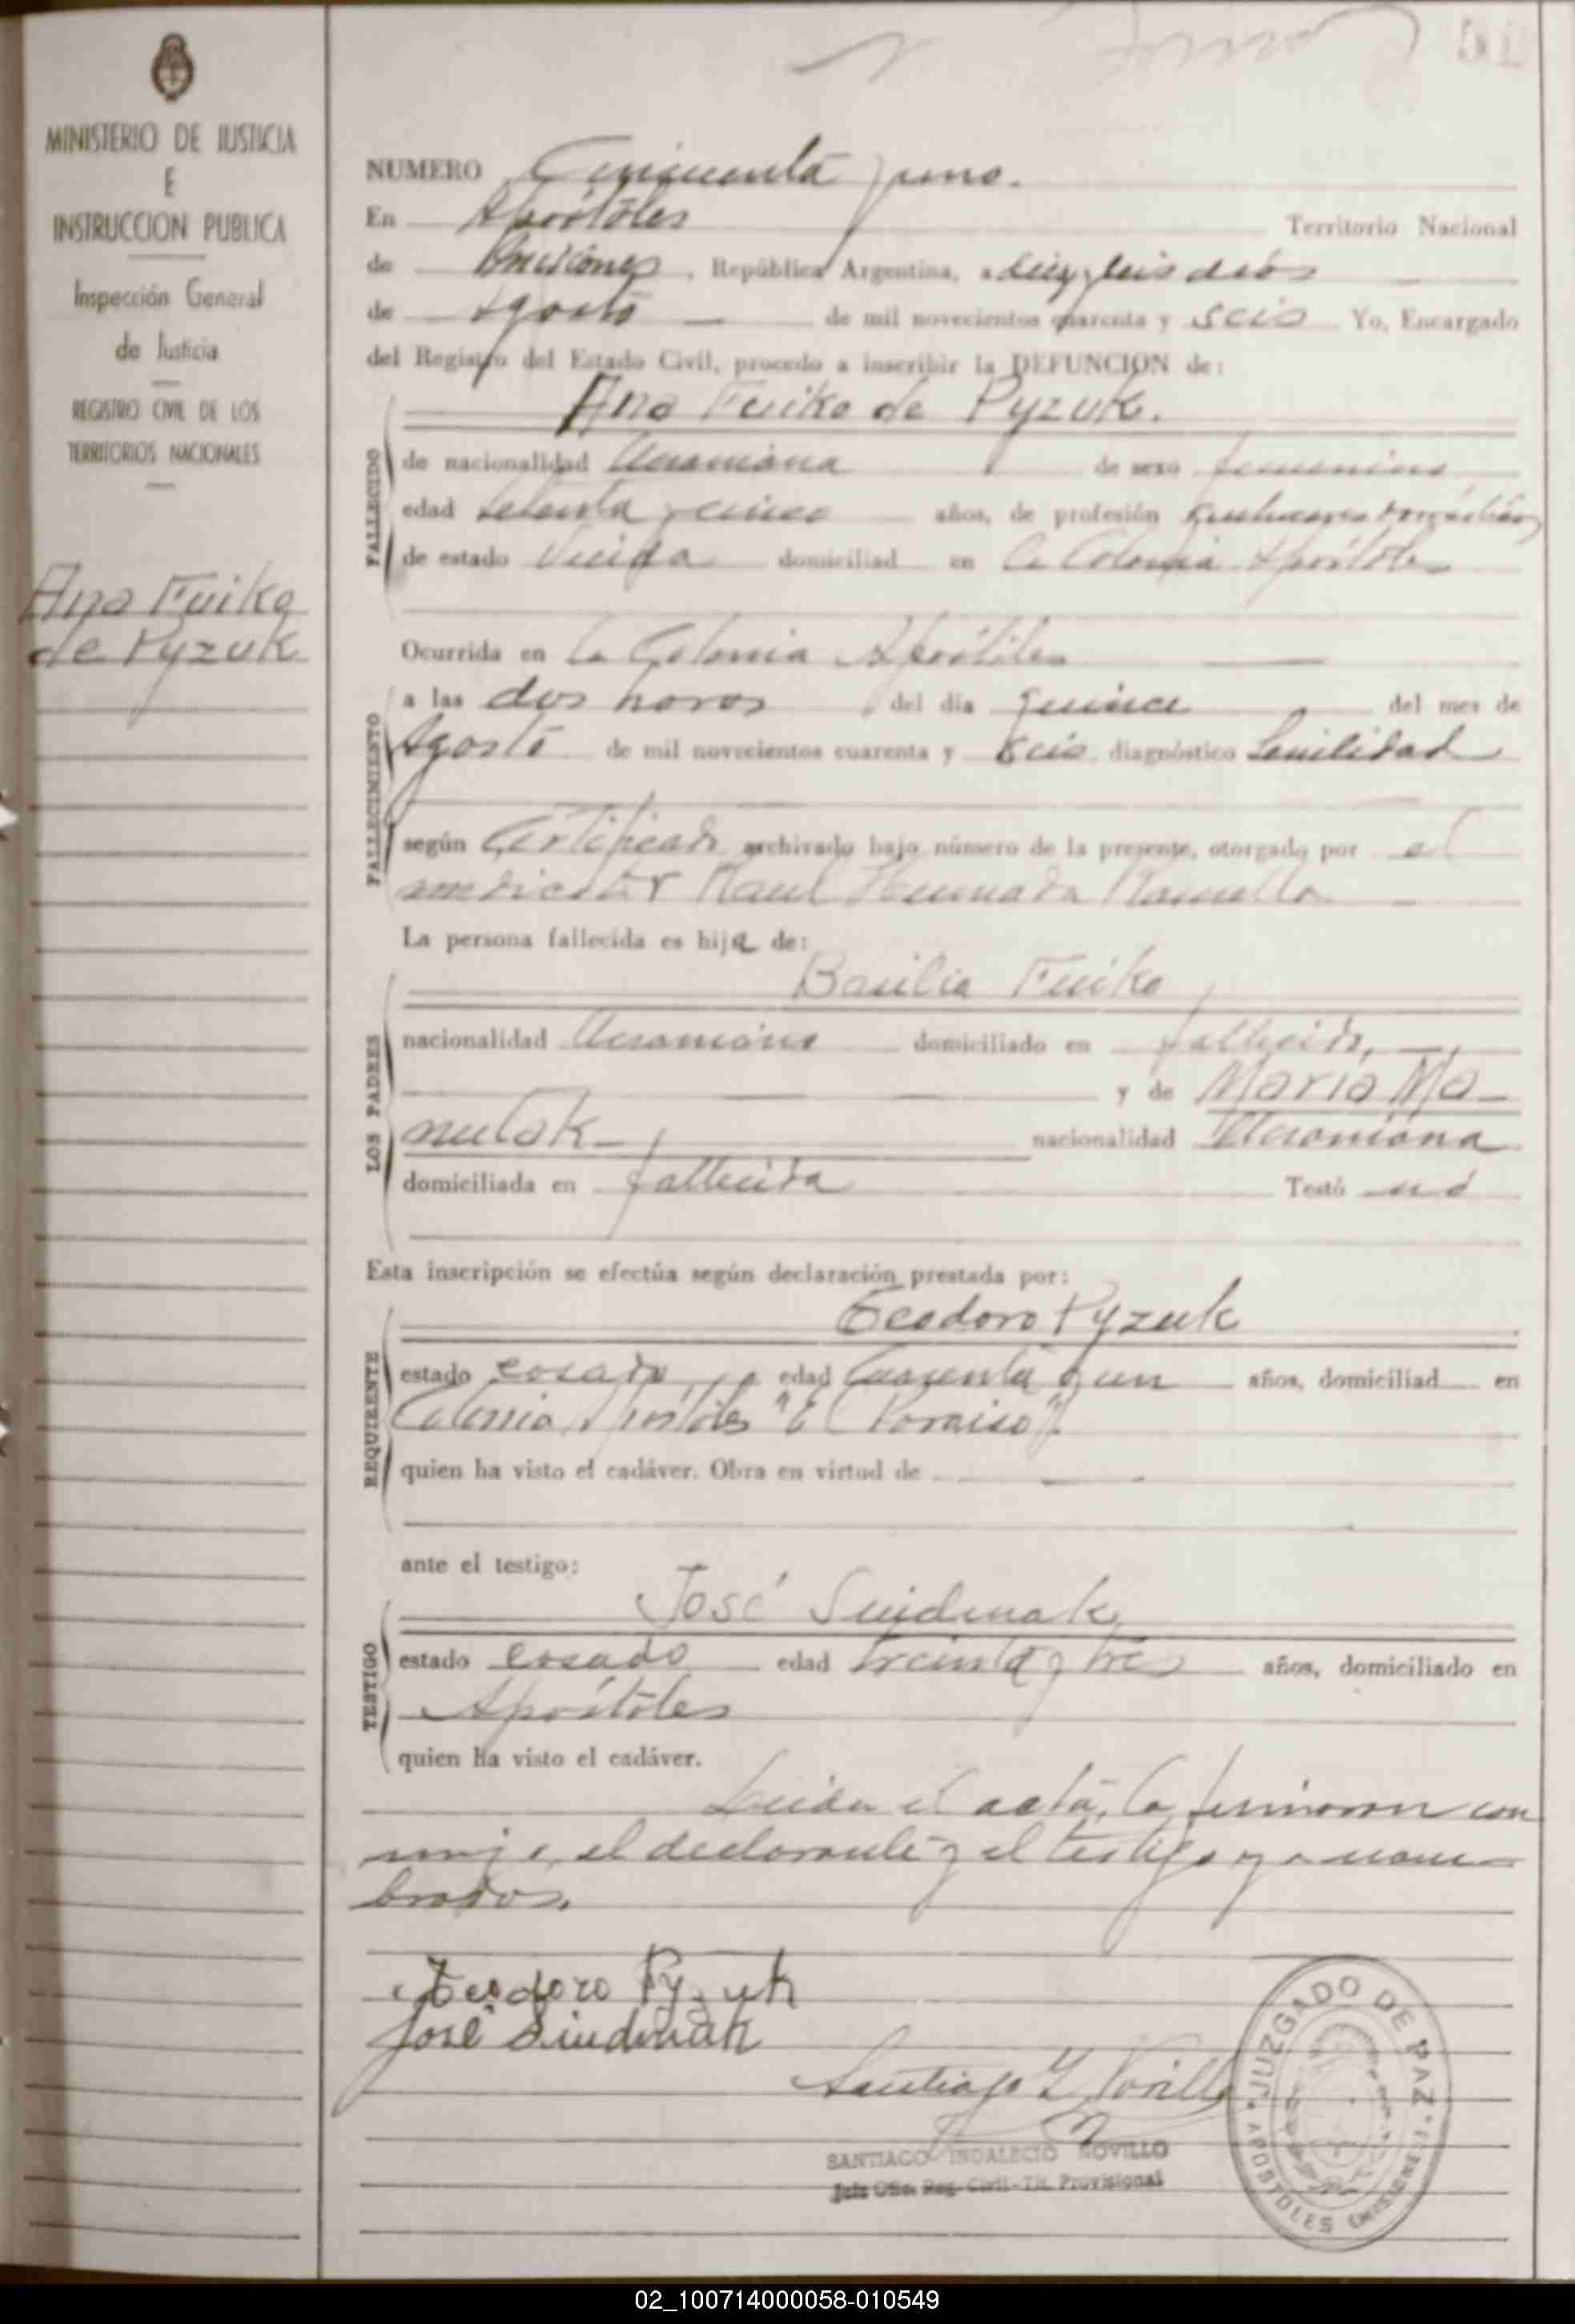 MINISTERIO DE JUSTICIA
E
INSTRUCCION PUBLICA
Inspección General
de Justicia
REGISTRO CIVIL DE LOS
TERRITORIOS NACIONALES
Ana Fuika
de Pyzuk
NUMERO Cincuenta y uno.
En Apóstoles Territorio Nacional
de Misiones, República Argentina, a diez y seis días
de Agosto de mil novecientos cuarenta y seis Yo, Encargado
del Registro del Estado Civil, procedo a inscribir la DEFUNCION de:
Ana Fuika de Pyzuk.
FALLECIDO
de nacionalidad Ucraniana de sexo femenino
edad setenta y cinco años, de profesión
de estado Viuda domiciliad en la Colonia Apóstoles
FALLECIMIENTO
Ocurrida en la Colonia Apóstoles
a las dos horas del día quince del mes de
Agosto de mil novecientos cuarenta y seis diagnóstico Senilidad
según Certificado archivado bajo número de la presente, otorgado por el
Raul
La persona fallecida es hija de:
LOS PADRES
Basilio Fuika
nacionalidad Ucraniano domiciliado en fallecido,
y de María Ma-
nulak nacionalidad Ucraniana
domiciliada en fallecida Testó nó
Esta inscripción se efectúa según declaración prestada por:
REQUIRENTE
Teodoro Pyzuk
estado casado, edad Cuarenta y un años, domiciliad en
Colonia Apóstoles "El Paraiso".
quien ha visto el cadáver. Obra en virtud de
ante el testigo:
TESTIGO
José Sindenak
estado casado edad treinta y tres años, domiciliado en
Apóstoles
quien ha visto el cadáver.
Leida el acta, la firmaron con
migo, el declarante y el testigo ya nom-
brados.
Teodoro Pyzuk
José Sindenak
Santiago I Novillo
SANTIAGO INDALECIO NOVILLO
Jefe Ofic. Reg. Civil - Tit. Provisional
JUZGADO DE PAZ
APOSTOLES (MISIONES)
02_100714000058-010549